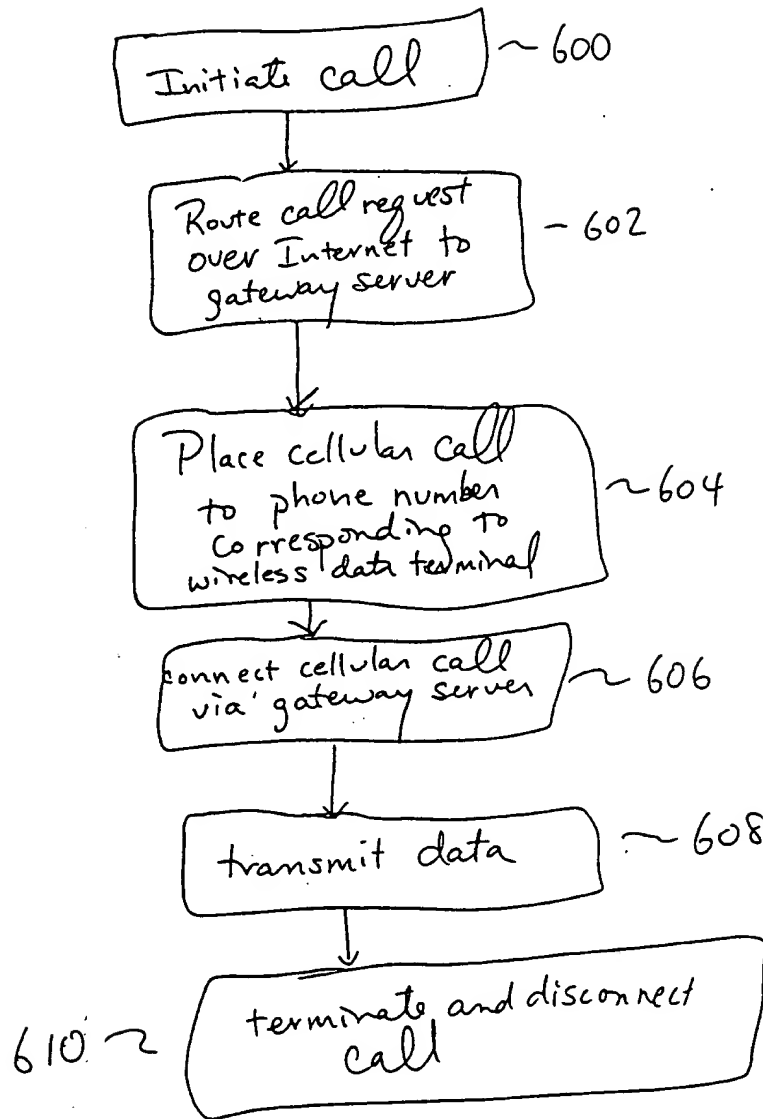 Initiate call ~ 600
Route call request
over Internet to
gateway server
~ 602
Place cellular call
to phone number
corresponding to
wireless data terminal
~ 604
connect cellular call
via gateway server
~ 606
transmit data ~ 608
terminate and disconnect
call
610 ~